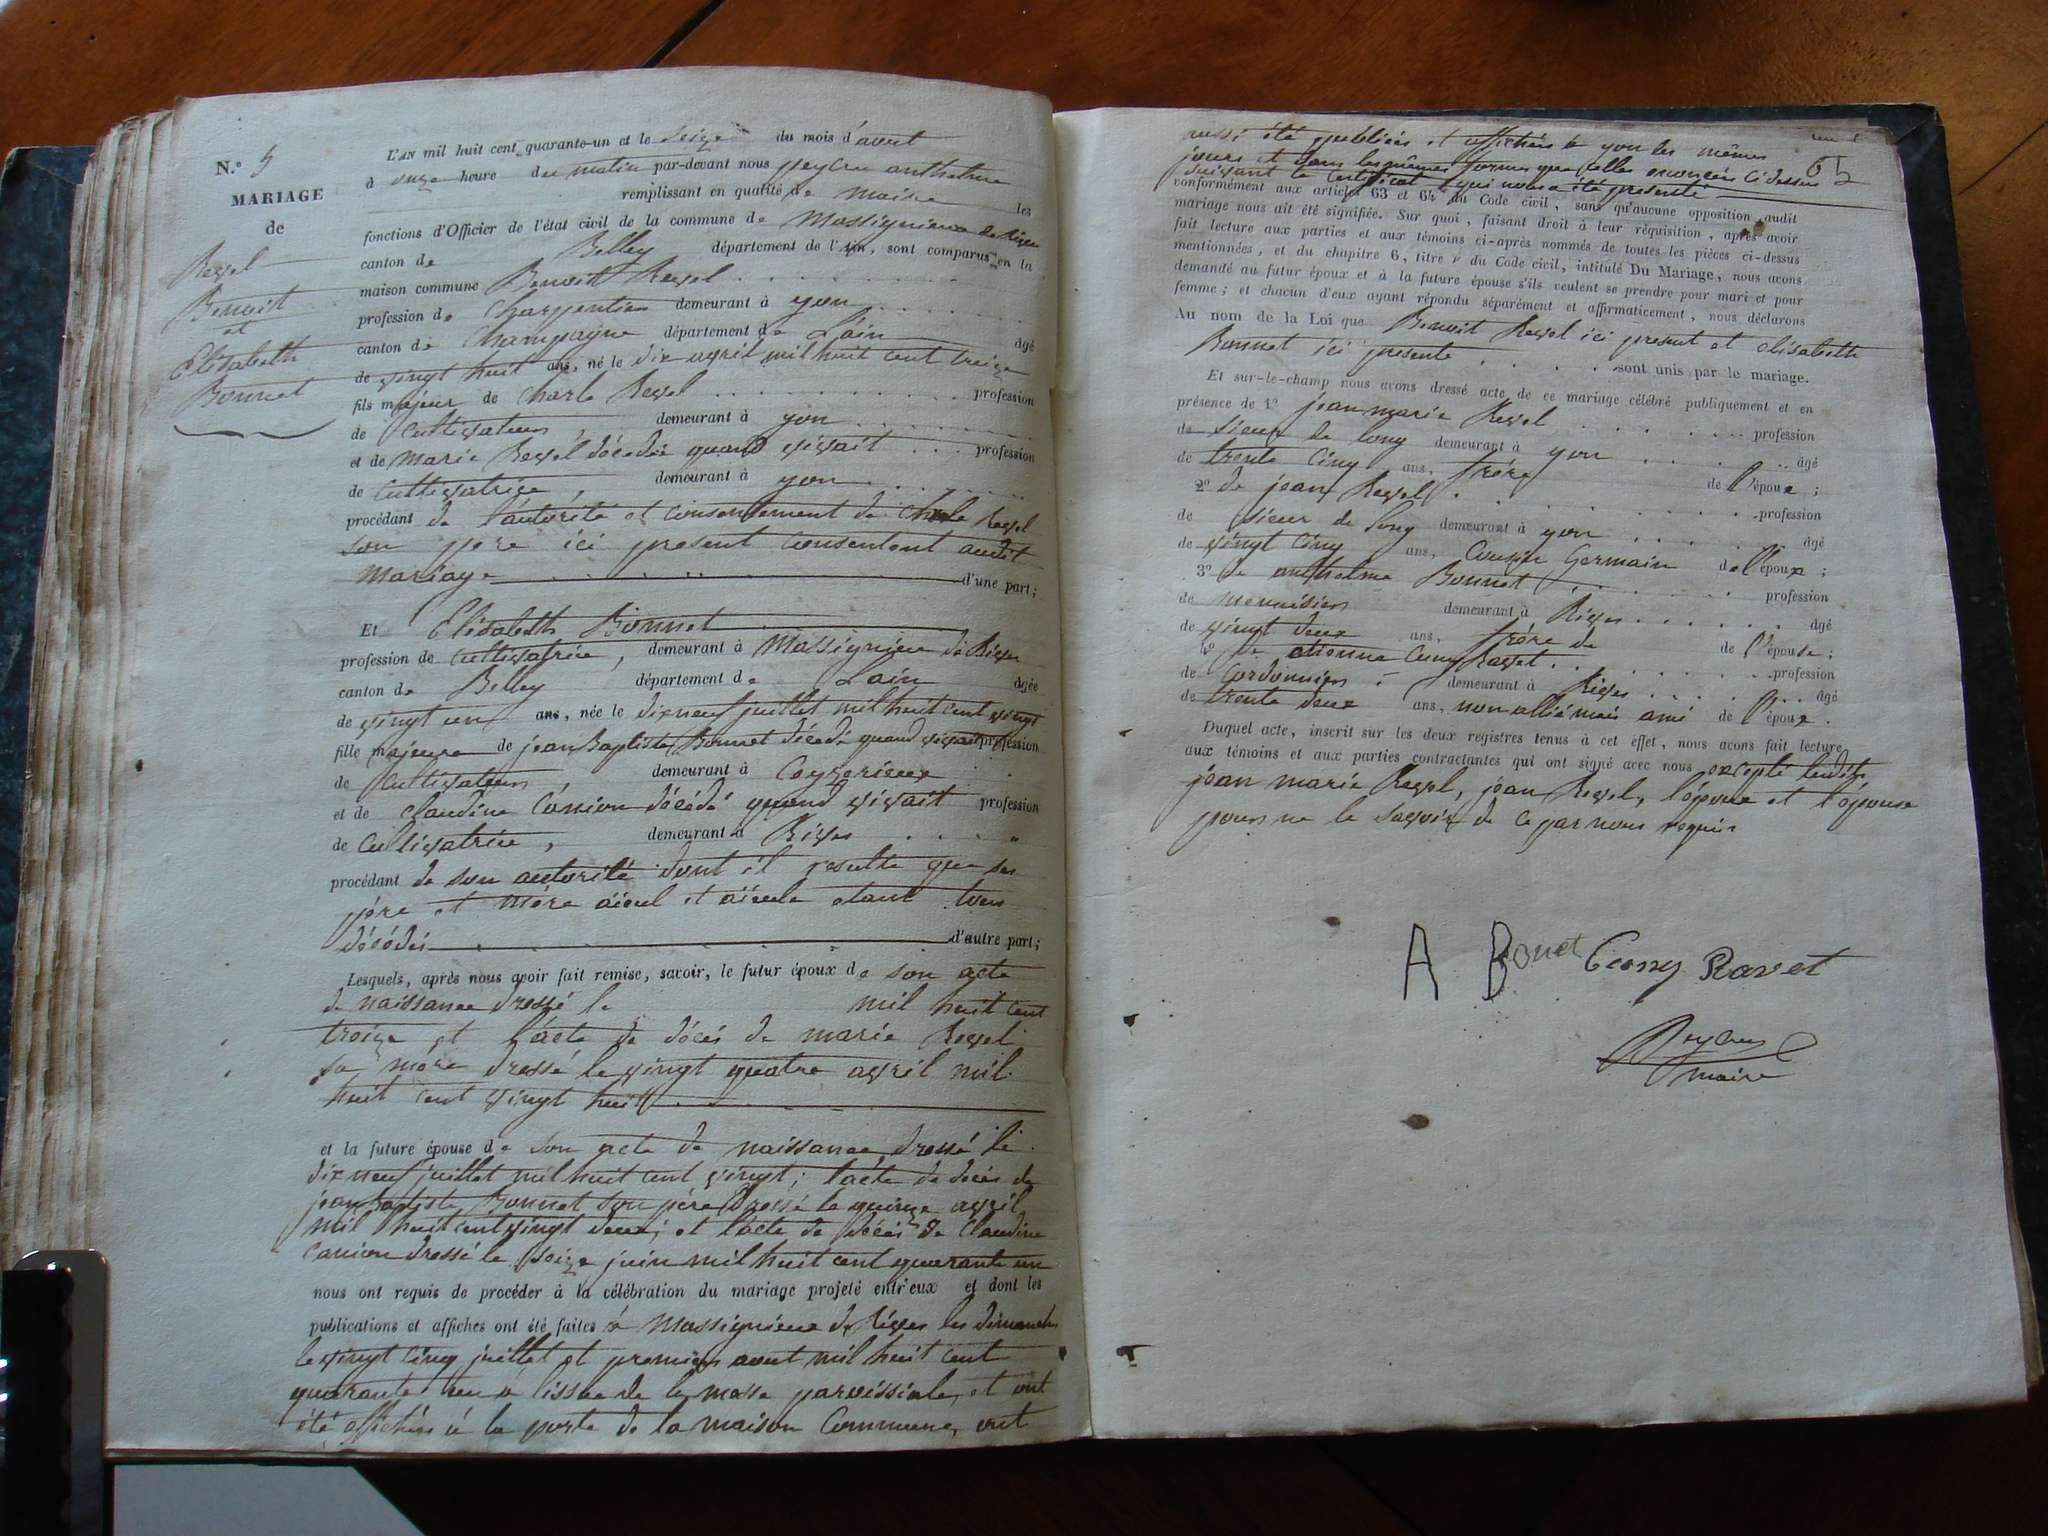 N.º 5
MARIAGE
de
Revel
Benoit
et
Elisabeth
Bonnet
L'AN mil huit cent quarante-un et le seize du mois d'aout
à onze heure du matin par-devant nous peycru anthelme
remplissant en qualité de maire les
fonctions d'Officier de l'état civil de la commune de Massignieux de Rives
canton de Belley département de l'Ain, sont comparus en la
maison commune Benoit Revel
profession de Charpentier demeurant à yon
canton de Champagne département de Lain âgé
de vingt huit ans, né le dix avril mil huit cent treize
fils majeur de Charle Revel profession
de Cultivateur, demeurant à yon
et de Marie Revel décédée quand vivait profession
de Cultivatrice, demeurant à yon
procédant de l'autorité et consentement de Charle Revel
son père ici présent consentant audit
Mariage d'une part;
Et Elisabeth Bonnet
profession de Cultivatrice, demeurant à Massignieu de Rives
canton de Belley département de Lain âgée
de vingt un ans, née le dix neuf juillet mil huit cent vingt
fille majeure de jean Baptiste Bonnet décédé quand vivait profession
de Cultivateur, demeurant à Coyzerieux
et de Claudine Canion décédé quand vivait profession
de Cultivatrice, demeurant à Rives
procédant de son autorité dont il resulte que ses
père et mère aïeul et aïeule etant tous
décédés d'autre part;
Lesquels, après nous avoir fait remise, savoir, le futur époux de son acte
de naissance dressé le mil huit cent
treize et l'acte de décès de marie Revel
sa mère dressé le vingt quatre avril mil
huit cent vingt huit
et la future épouse de son acte de naissance dressé le
dix neuf juillet mil huit cent vingt; l'acte de décès de
jean Baptiste Bonnet son père dressé le quinze avril
mil huit cent vingt deux; et l'acte de décès de Claudine
Canion dressé le seize juin mil huit cent quarante un
nous ont requis de procéder à la célébration du mariage projeté entr'eux et dont les
publications et affiches ont été faites à Massignieux de Rives les dimanches
le vingt cinq juillet et premier aout mil huit cent
quarante un à lissue de la messe paroissiale, et ont
été affichées à la porte de la maison Commune, ont
65
aussi été publiées et affichées à yon les mêmes
jours et dans les mêmes formes que celles enoncées ci dessus
suivant le certificat qui nous a été presenté
conformément aux articles 63 et 64 du Code civil, sans qu'aucune opposition audit
mariage nous ait été signifiée. Sur quoi, faisant droit à leur réquisition, après avoir
fait lecture aux parties et aux témoins ci-après nommés de toutes les pièces ci-dessus
mentionnées, et du chapitre 6, titre v du Code civil, intitulé Du Mariage, nous avons
demandé au futur époux et à la future épouse s'ils veulent se prendre pour mari et pour
femme; et chacun d'eux ayant répondu séparément et affirmativement, nous déclarons
Au nom de la Loi que Benoit Revel ici present et elisabeth
Bonnet ici presente sont unis par le mariage.
Et sur-le-champ nous avons dressé acte de ce mariage célébré publiquement et en
présence de 1º jean marie Revel profession
de sieur de long demeurant à yon âgé
de trente cinq ans, frère de l'époux;
2º de jean Revel profession
de sieur de long demeurant à yon âgé
de vingt cinq ans, Cousin Germain de l'époux;
3º de anthelme Bonnet profession
de menuisier demeurant à Rives âgé
de vingt deux ans, frère de de l'épouse;
4º de etienne Ravet profession
de Cordonnier demeurant à Rives âgé
de trente deux ans, non allié mais ami de l'époux.
Duquel acte, inscrit sur les deux registres tenus à cet effet, nous avons fait lecture
aux témoins et aux parties contractantes qui ont signé avec nous excepté lesdits
jean marie Revel, jean Revel, l'époux et l'épouse
pour ne le savoir de ce par nous requis
A Bonet Ravet
Peycru
maire